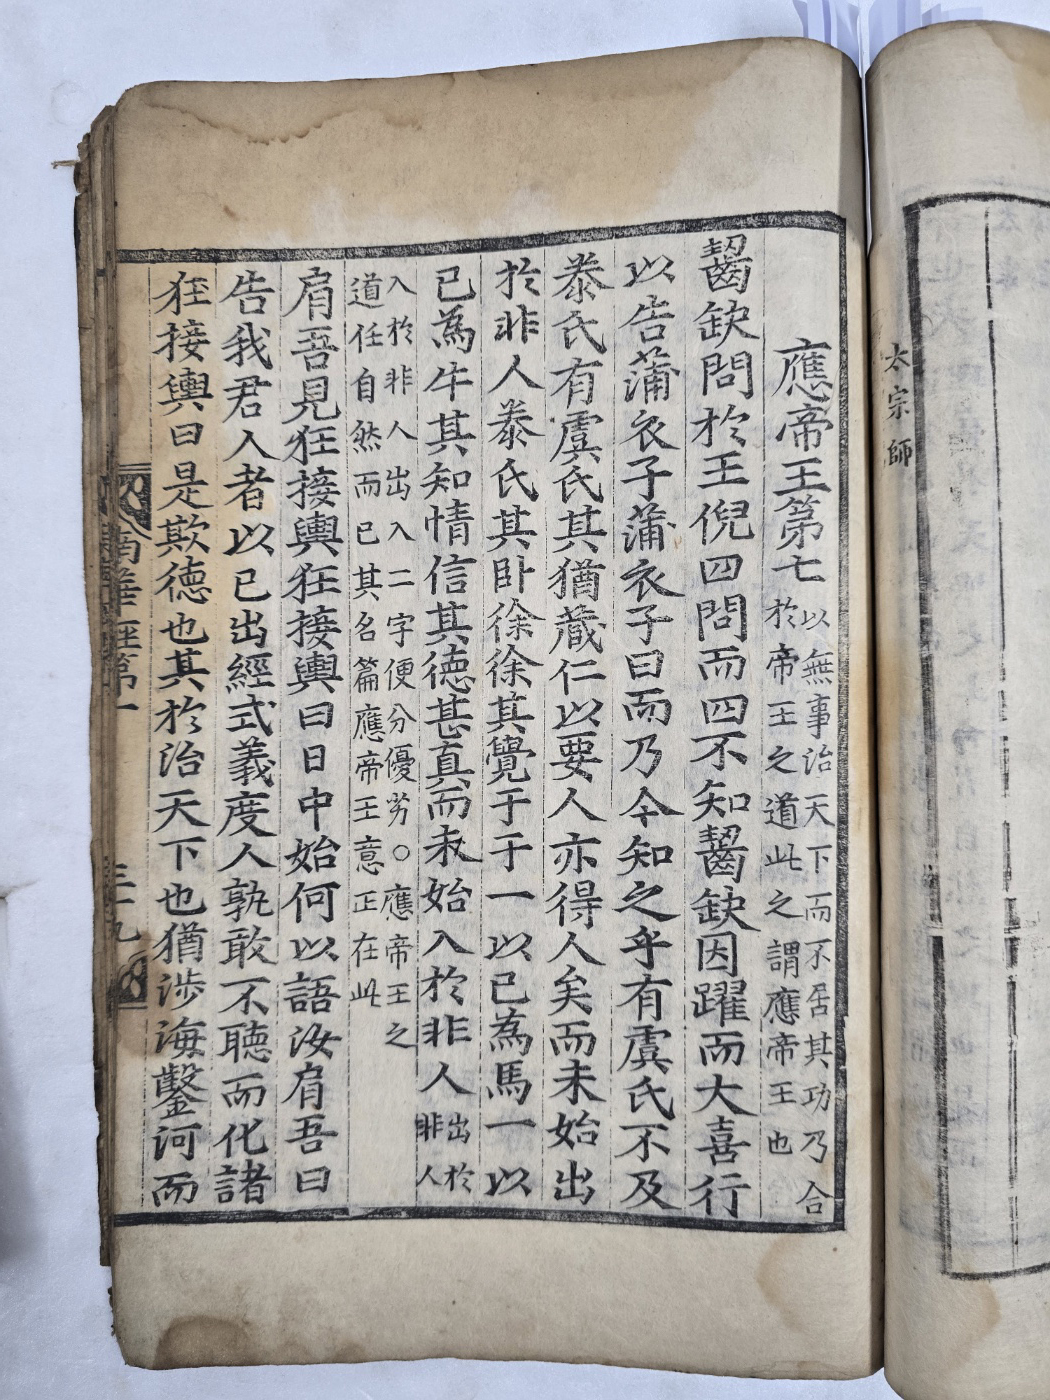 應帝王第七 以無事治天下而不居其功乃合
於帝王之道此之謂應帝王也
齧缺問於王倪四問而四不知齧缺因躍而大喜行
以告蒲衣子蒲衣子曰而乃今知之乎有虞氏不及
泰氏有虞氏其猶藏仁以要人亦得人矣而未始出
於非人泰氏其臥徐徐其覺于于一以已為馬一以
已為牛其知情信其德甚真而未始入於非人 出於
非人
入於非人出入二字便分優劣○應帝王之
道任自然而已其名篇應帝王意正在此
肩吾見狂接輿狂接輿曰日中始何以語汝肩吾曰
告我君人者以已出經式義度人孰敢不聽而化諸
狂接輿曰是欺德也其於治天下也猶涉海鑿河而
南華經第一
三十九
大宗師